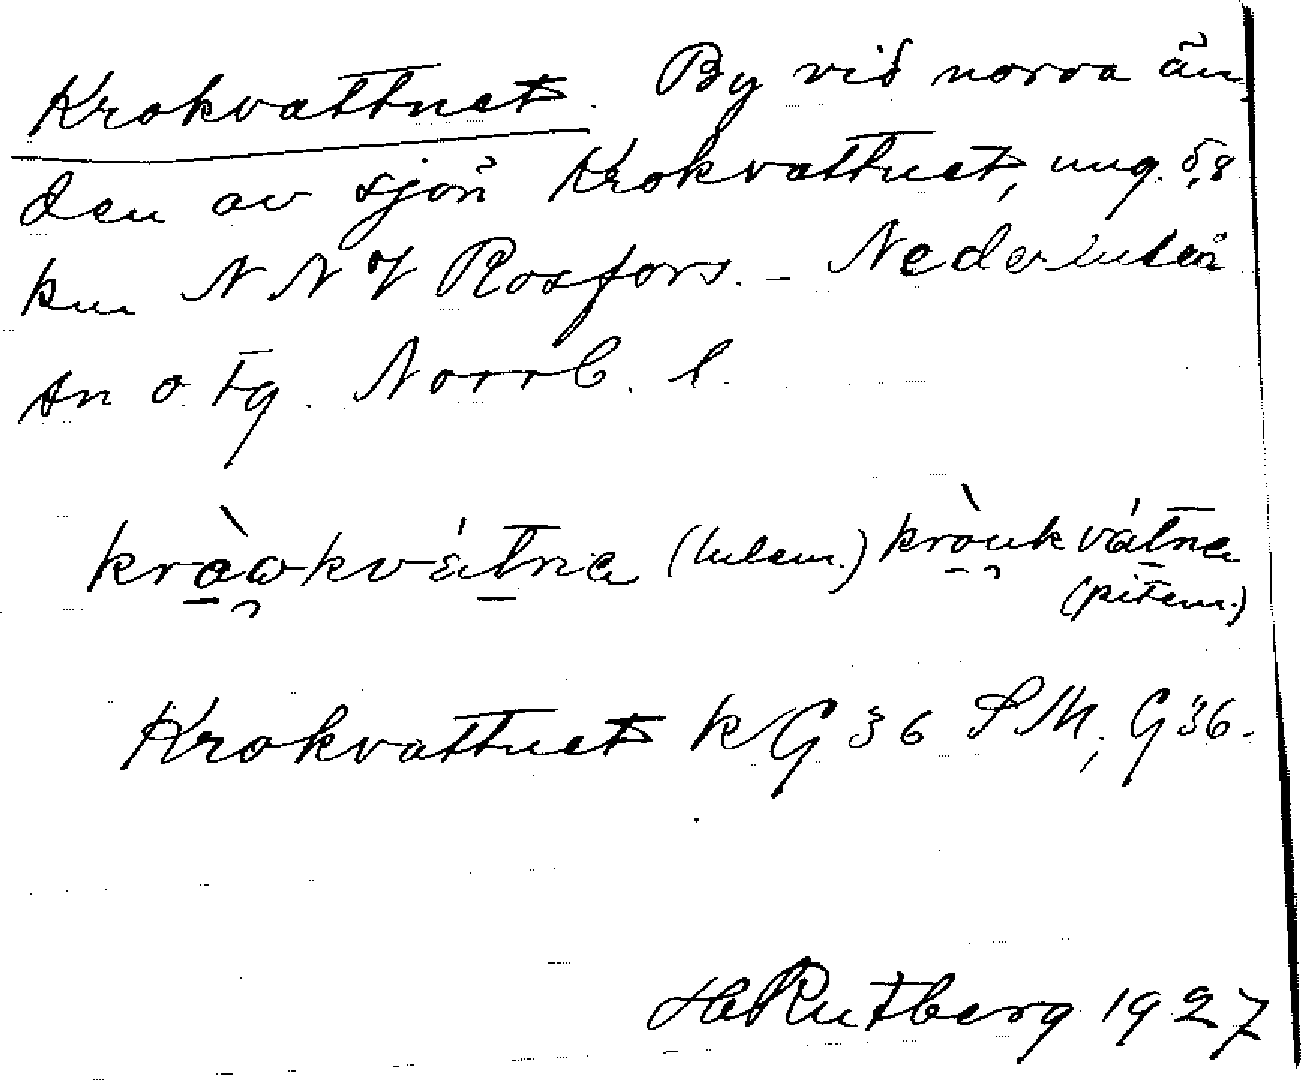 Krokvattnet. By vid norra än
den av sjön Krokvattnet, ung. 5,8
km N N V Rosfors. – Nederluleå
sn o tg. Norrb. l.
kròokvátna (lulem.) kròukvátna
(pitem.)
Krokvattnet k G 36 S M, G 36.
H Rutberg 1927